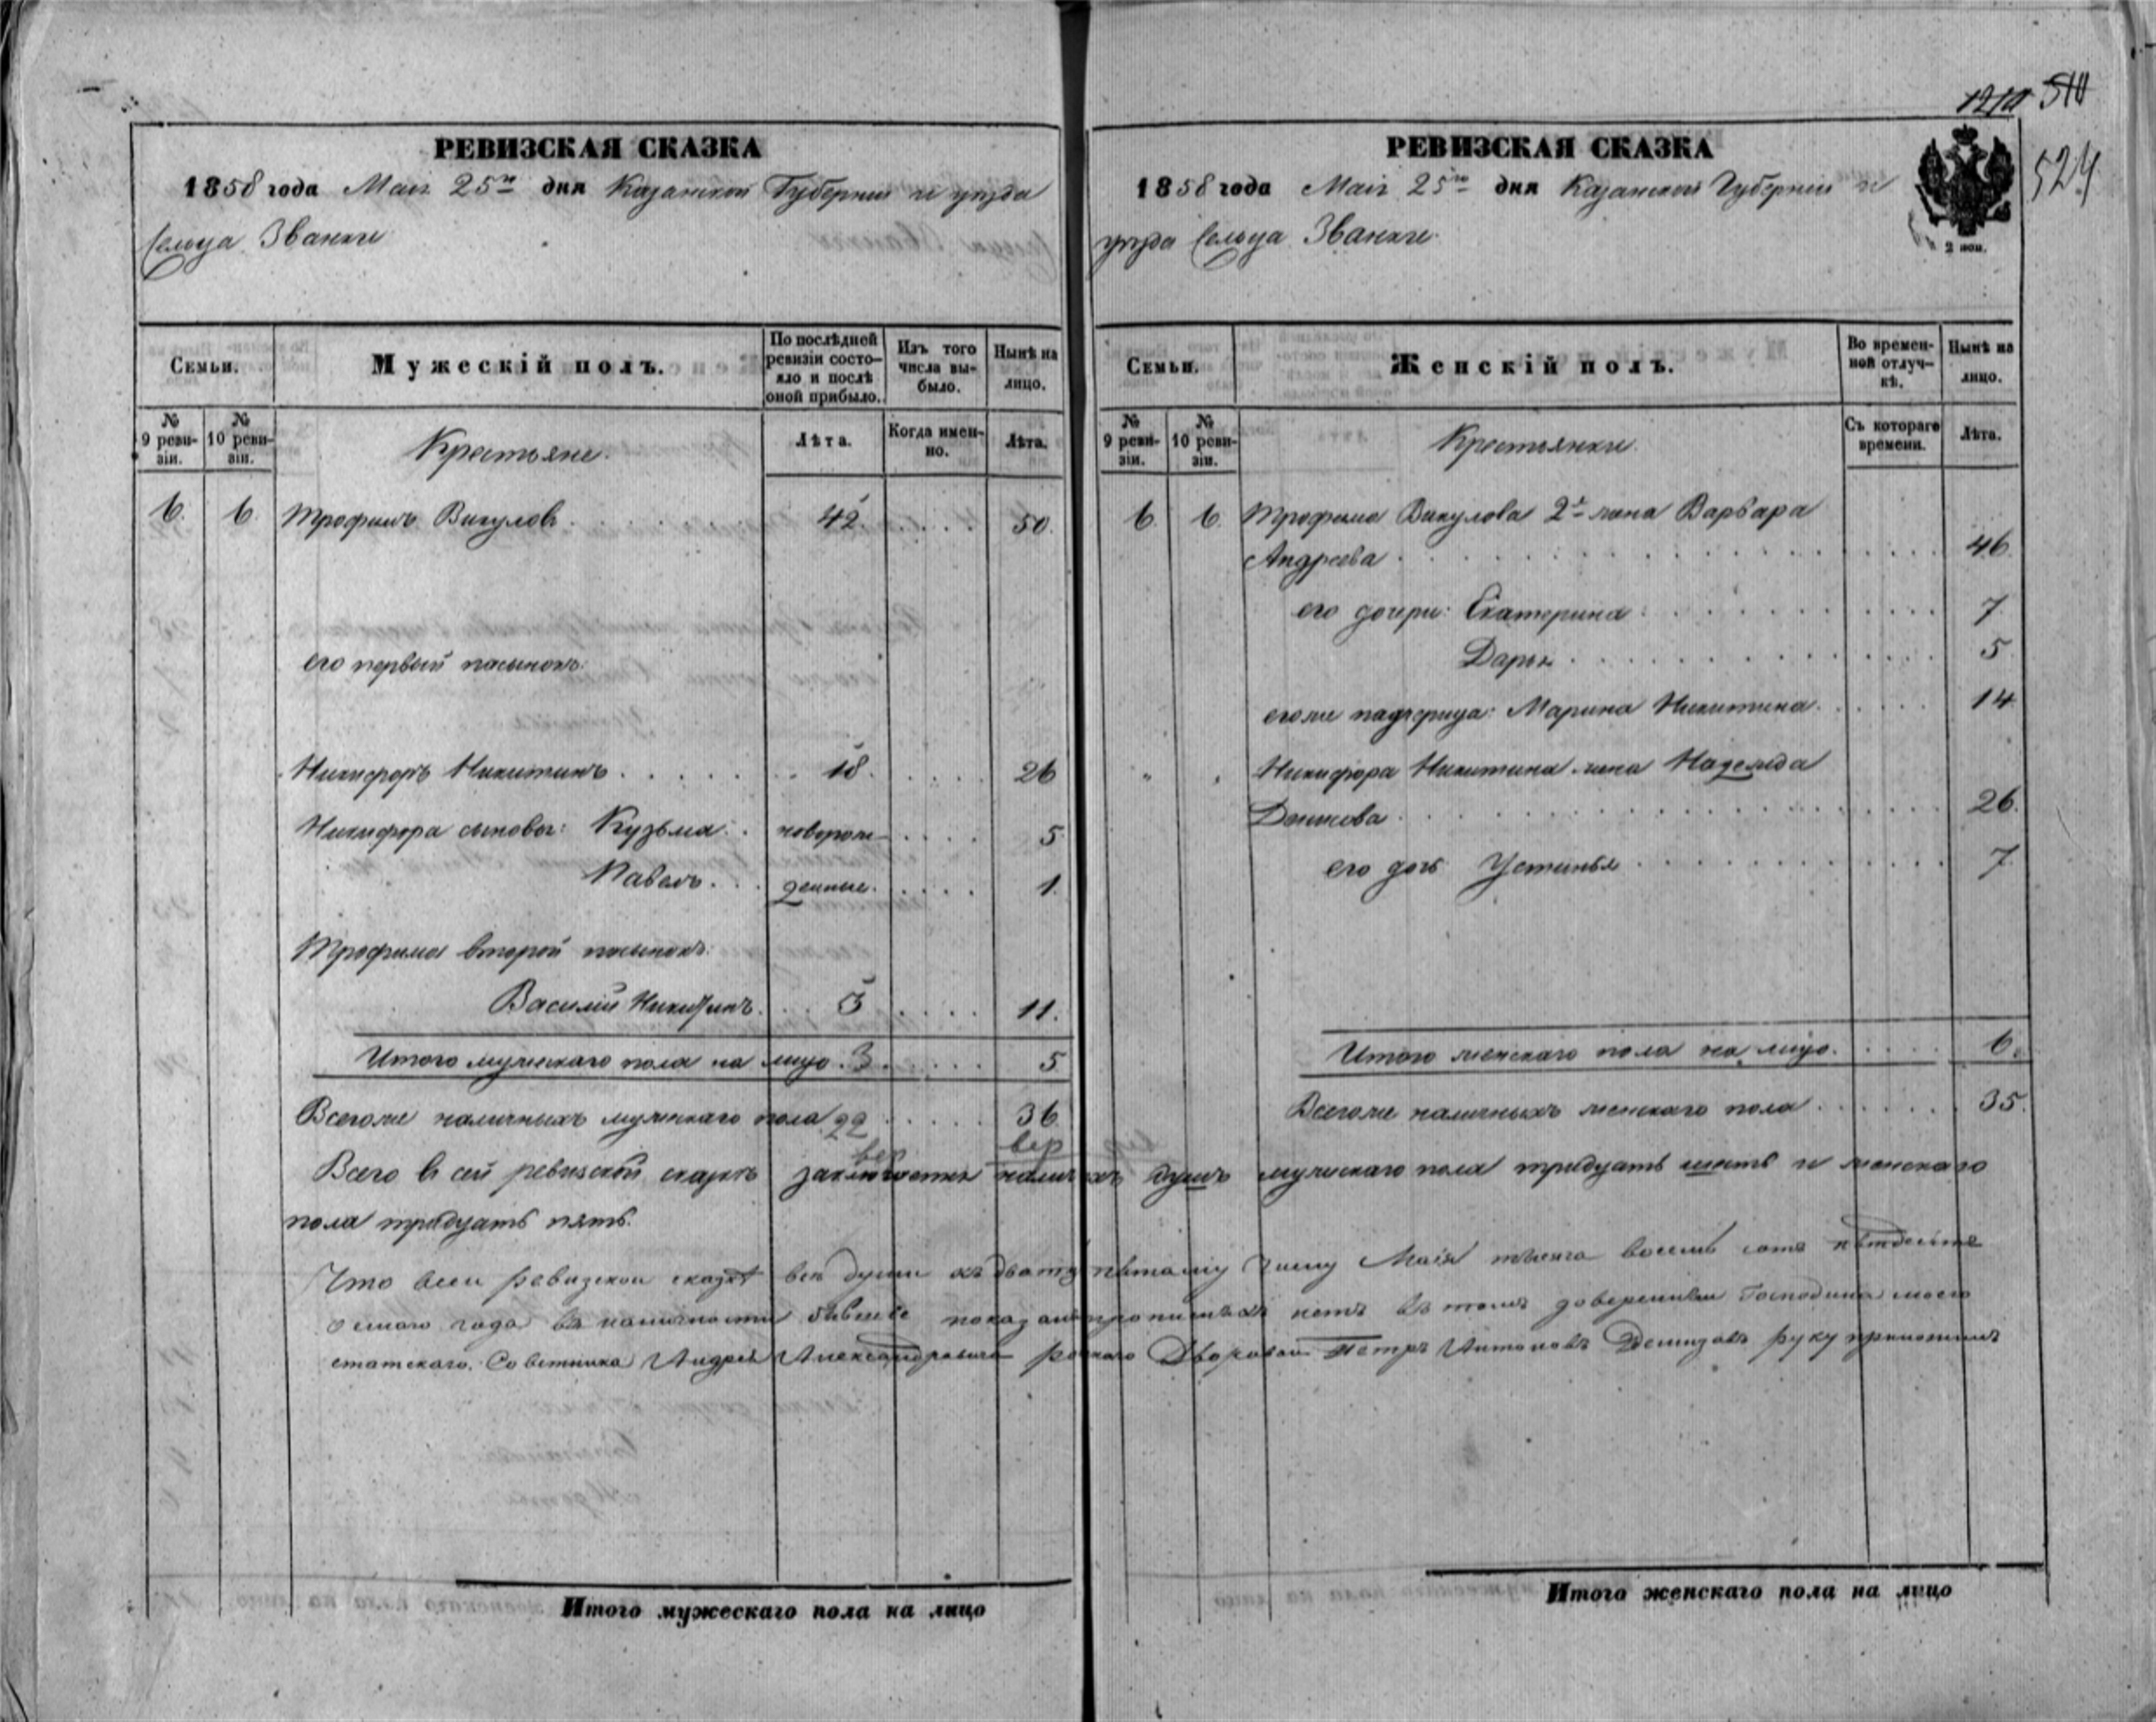 1210 510
524
РЕВИЗСКАЯ СКАЗКА
1858 года Маія 25го дня Казанской Губерніи и уѣзда
Сельца Званки
Семьи.
Мужескій полъ.
По послѣдней ревизіи состояло и послѣ оной прибыло.
Изъ того числа выбыло.
Нынѣ на лицо.
№ 9 ревизіи.
№ 10 ревизіи.
Крестьяне.
Лѣта.
Когда именно.
Лѣта.
6. 6. Трофимъ Викулов. 42. 50.
его первый пасынокъ:
Никифоръ Никитинъ. 18. 26
Никифора сыновья: Кузьма. новорож- 5
Павелъ. денные. 1.
Трофима второй пасынокъ:
Василій Никитинъ. 3 11.
Итого мужескаго пола на лицо. 3. 5
Всегоже наличныхъ мужескаго пола 22 36
вер вер
РЕВИЗСКАЯ СКАЗКА
1858 года Маія 25го дня Казанской Губерніи и
уѣзда Сельца Званки
2 коп.
Семьи.
Женскій полъ.
Во временной отлучкѣ.
Нынѣ на лицо.
№ 9 ревизіи.
№ 10 ревизіи.
Крестьянки.
Съ котораго времени.
Лѣта.
6 6. Трофима Викулова 2я жена Варвара
Андреева 46.
его дочери: Екатерина 7
Дарья 5.
егоже падчерица: Марина Никитина. 14
" " Никифора Никитина жена Надежда
Денисова 26.
его дочь Устинья 7
Итого женскаго пола на лицо. 6.
Всегоже наличныхъ женскаго пола 35.
Всего в сей ревизской сказкѣ заключается налич хъ душъ мужескаго пола тридцать шесть и женскаго
пола тридцать пять.
Что всеи ревизскои сказкѣ все души къ дватц пятому числу Маія тысяча восемь сотъ пятдесятъ
осмаго года въ наличности бывшіе показаны прописныхъ нетъ въ томъ довереннои Господина моего
статскаго Советника Андрея Александровича Дворовои Петръ Антоновъ Демидовъ руку приложилъ
Итого мужескаго пола на лицо
Итого женскаго пола на лицо